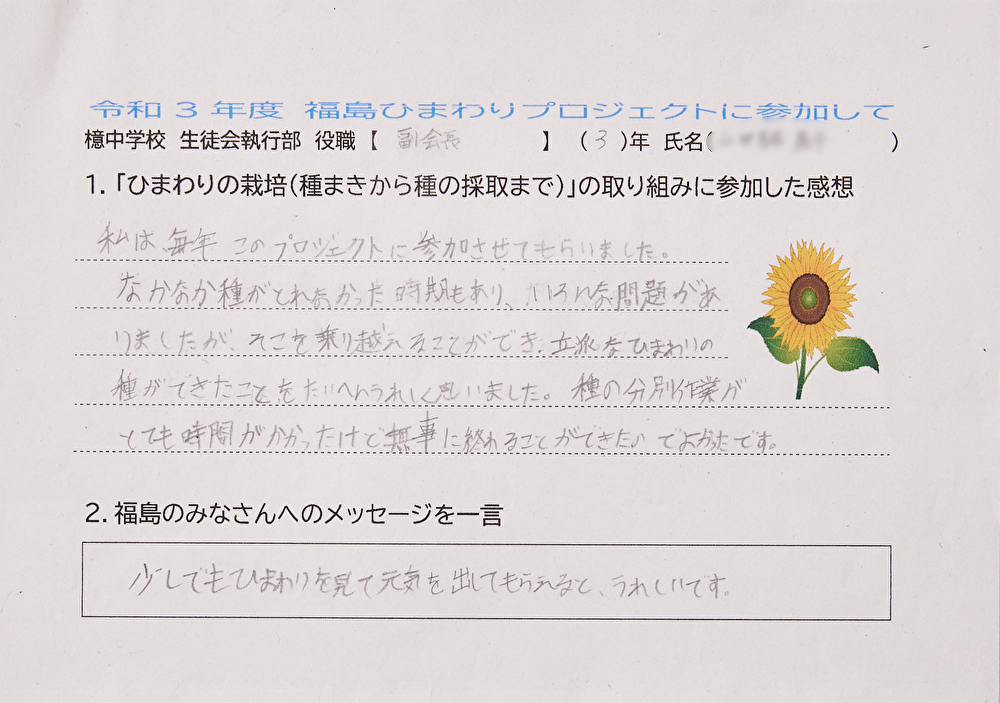 令和3年度 福島ひまわりプロジェクトに参加して
檍中学校 生徒会執行部 役職【 副会長 】 (3)年 氏名( )
1.「ひまわりの栽培(種まきから種の採取まで)」の取り組みに参加した感想
私は、毎年このプロジェクトに参加させてもらいました。
なかなか種がとれなかった時期もあり、いろんな問題があ
りましたが、そこを乗り越えることができ、立派なひまわりの
種ができたことをたいへんうれしく思いました。種の分別作業が
とても時間がかかったけど無事に終わることができたのでよかったです。
2.福島のみなさんへのメッセージを一言
少しでもひまわりを見て元気を出してもらえると、うれしいです。